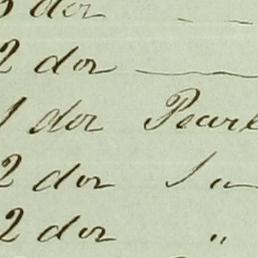 3 doz
2 doz
1 doz Pearl
2 doz
2 doz "